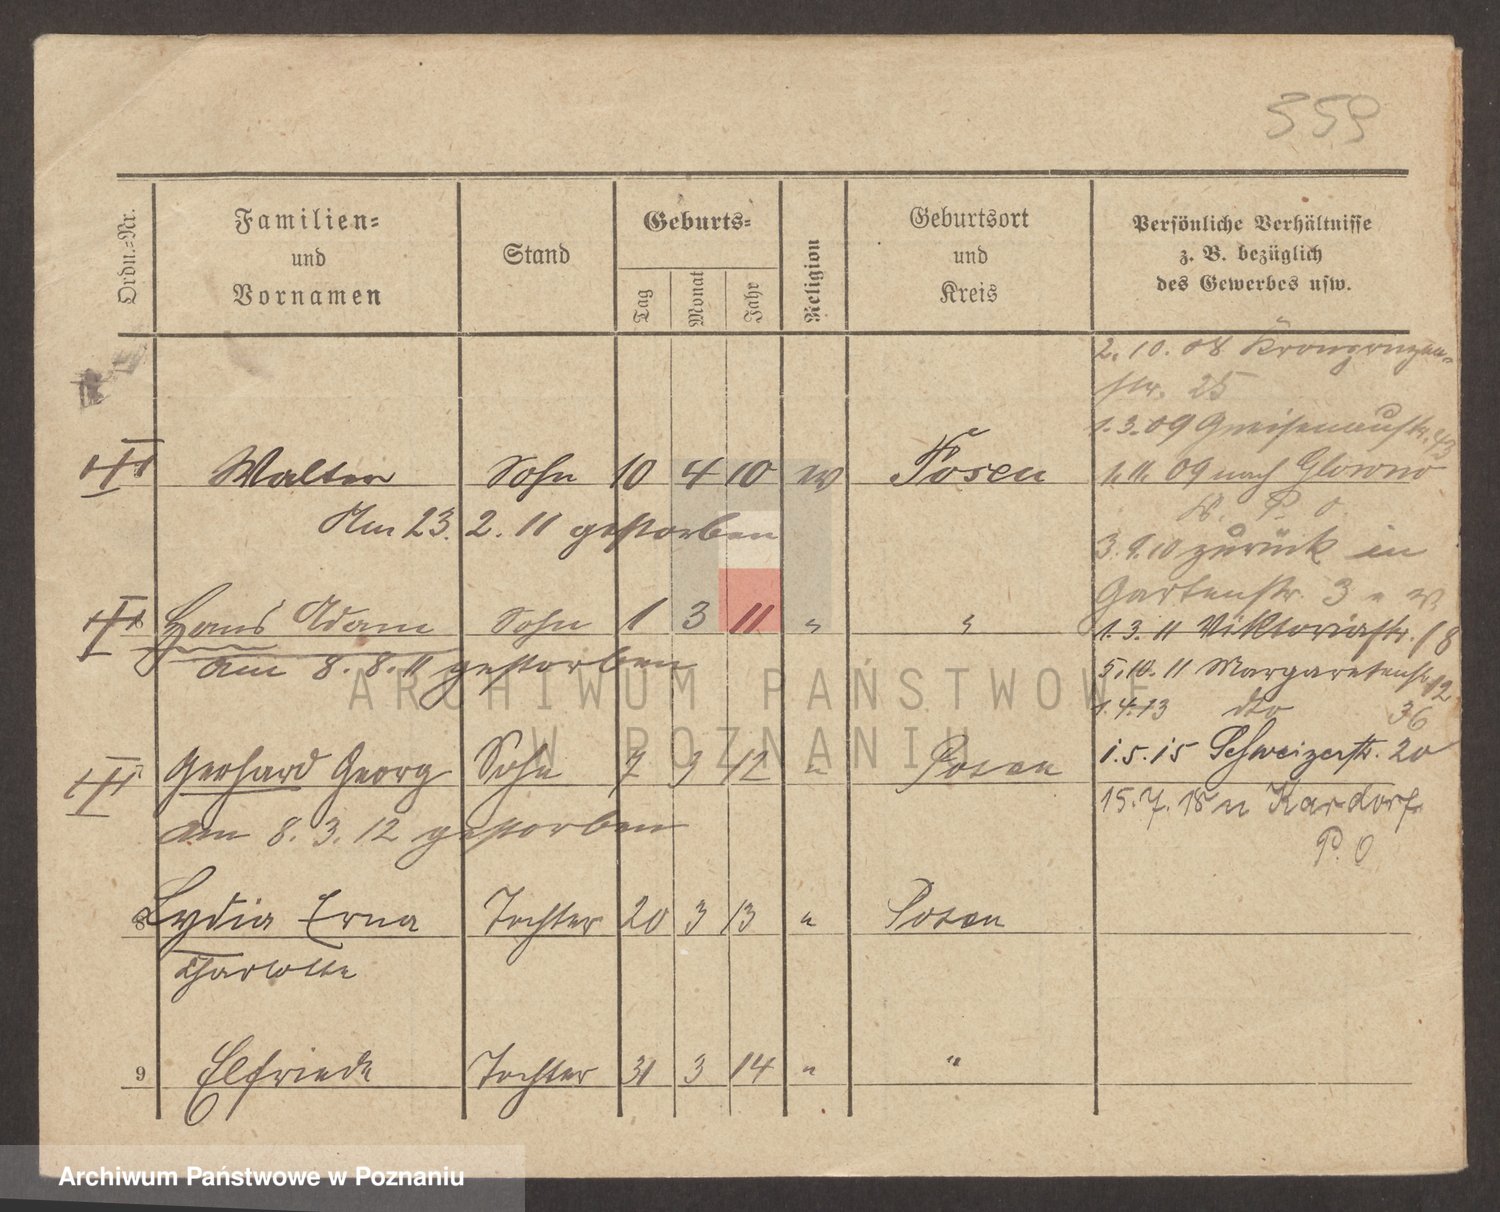 359
Ordn.-Nr.
Familien-
und
Vornamen
Stand
Geburts-
Tag
Monat
Jahr
Religion
Geburtsort
und
Kreis
Persönliche Verhältnisse
z. B. bezüglich
des Gewerbes usw.
2. 10. 08 Kronprinzen-
str. 25
1.3.09 Gneisenaustr. 43
1.11.09 nach Glowno
P. O.
3.9.10 zurück in
Gartenstr. 3
1.3.11 Viktoriastr. 18
5.10.11 Margaretenstr. 12
1.4.13 dto 36
1.5.15 Schweizerstr. 20
15.7.18 n Kardorf
P. O
Walter Sohn 10 4 10 Posen
Am 23. 2. 11 gestorben
Hans Adam Sohn 1 3 11 " "
am 8. 8. 11 gestorben
Gerhard Georg Sohn 7 9 12 " Posen
am 8. 3. 12 gestorben
8 Lydia Erna Tochter 20 3 13 " Posen
Charlotte
9 Elfriede Tochter 31 3 14 " "
ARCHIWUM PAŃSTWOWE
W POZNANIU
Archiwum Państwowe w Poznaniu